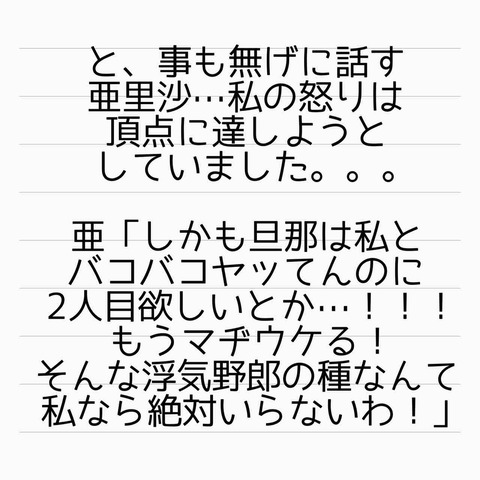 と、事も無げに話す
亜里沙…私の怒りは
頂点に達しようと
していました。。。
亜「しかも旦那は私と
バコバコヤッてんのに
2人目欲しいとか…！！！
もうマヂウケる！
そんな浮気野郎の種なんて
私なら絶対いらないわ！」